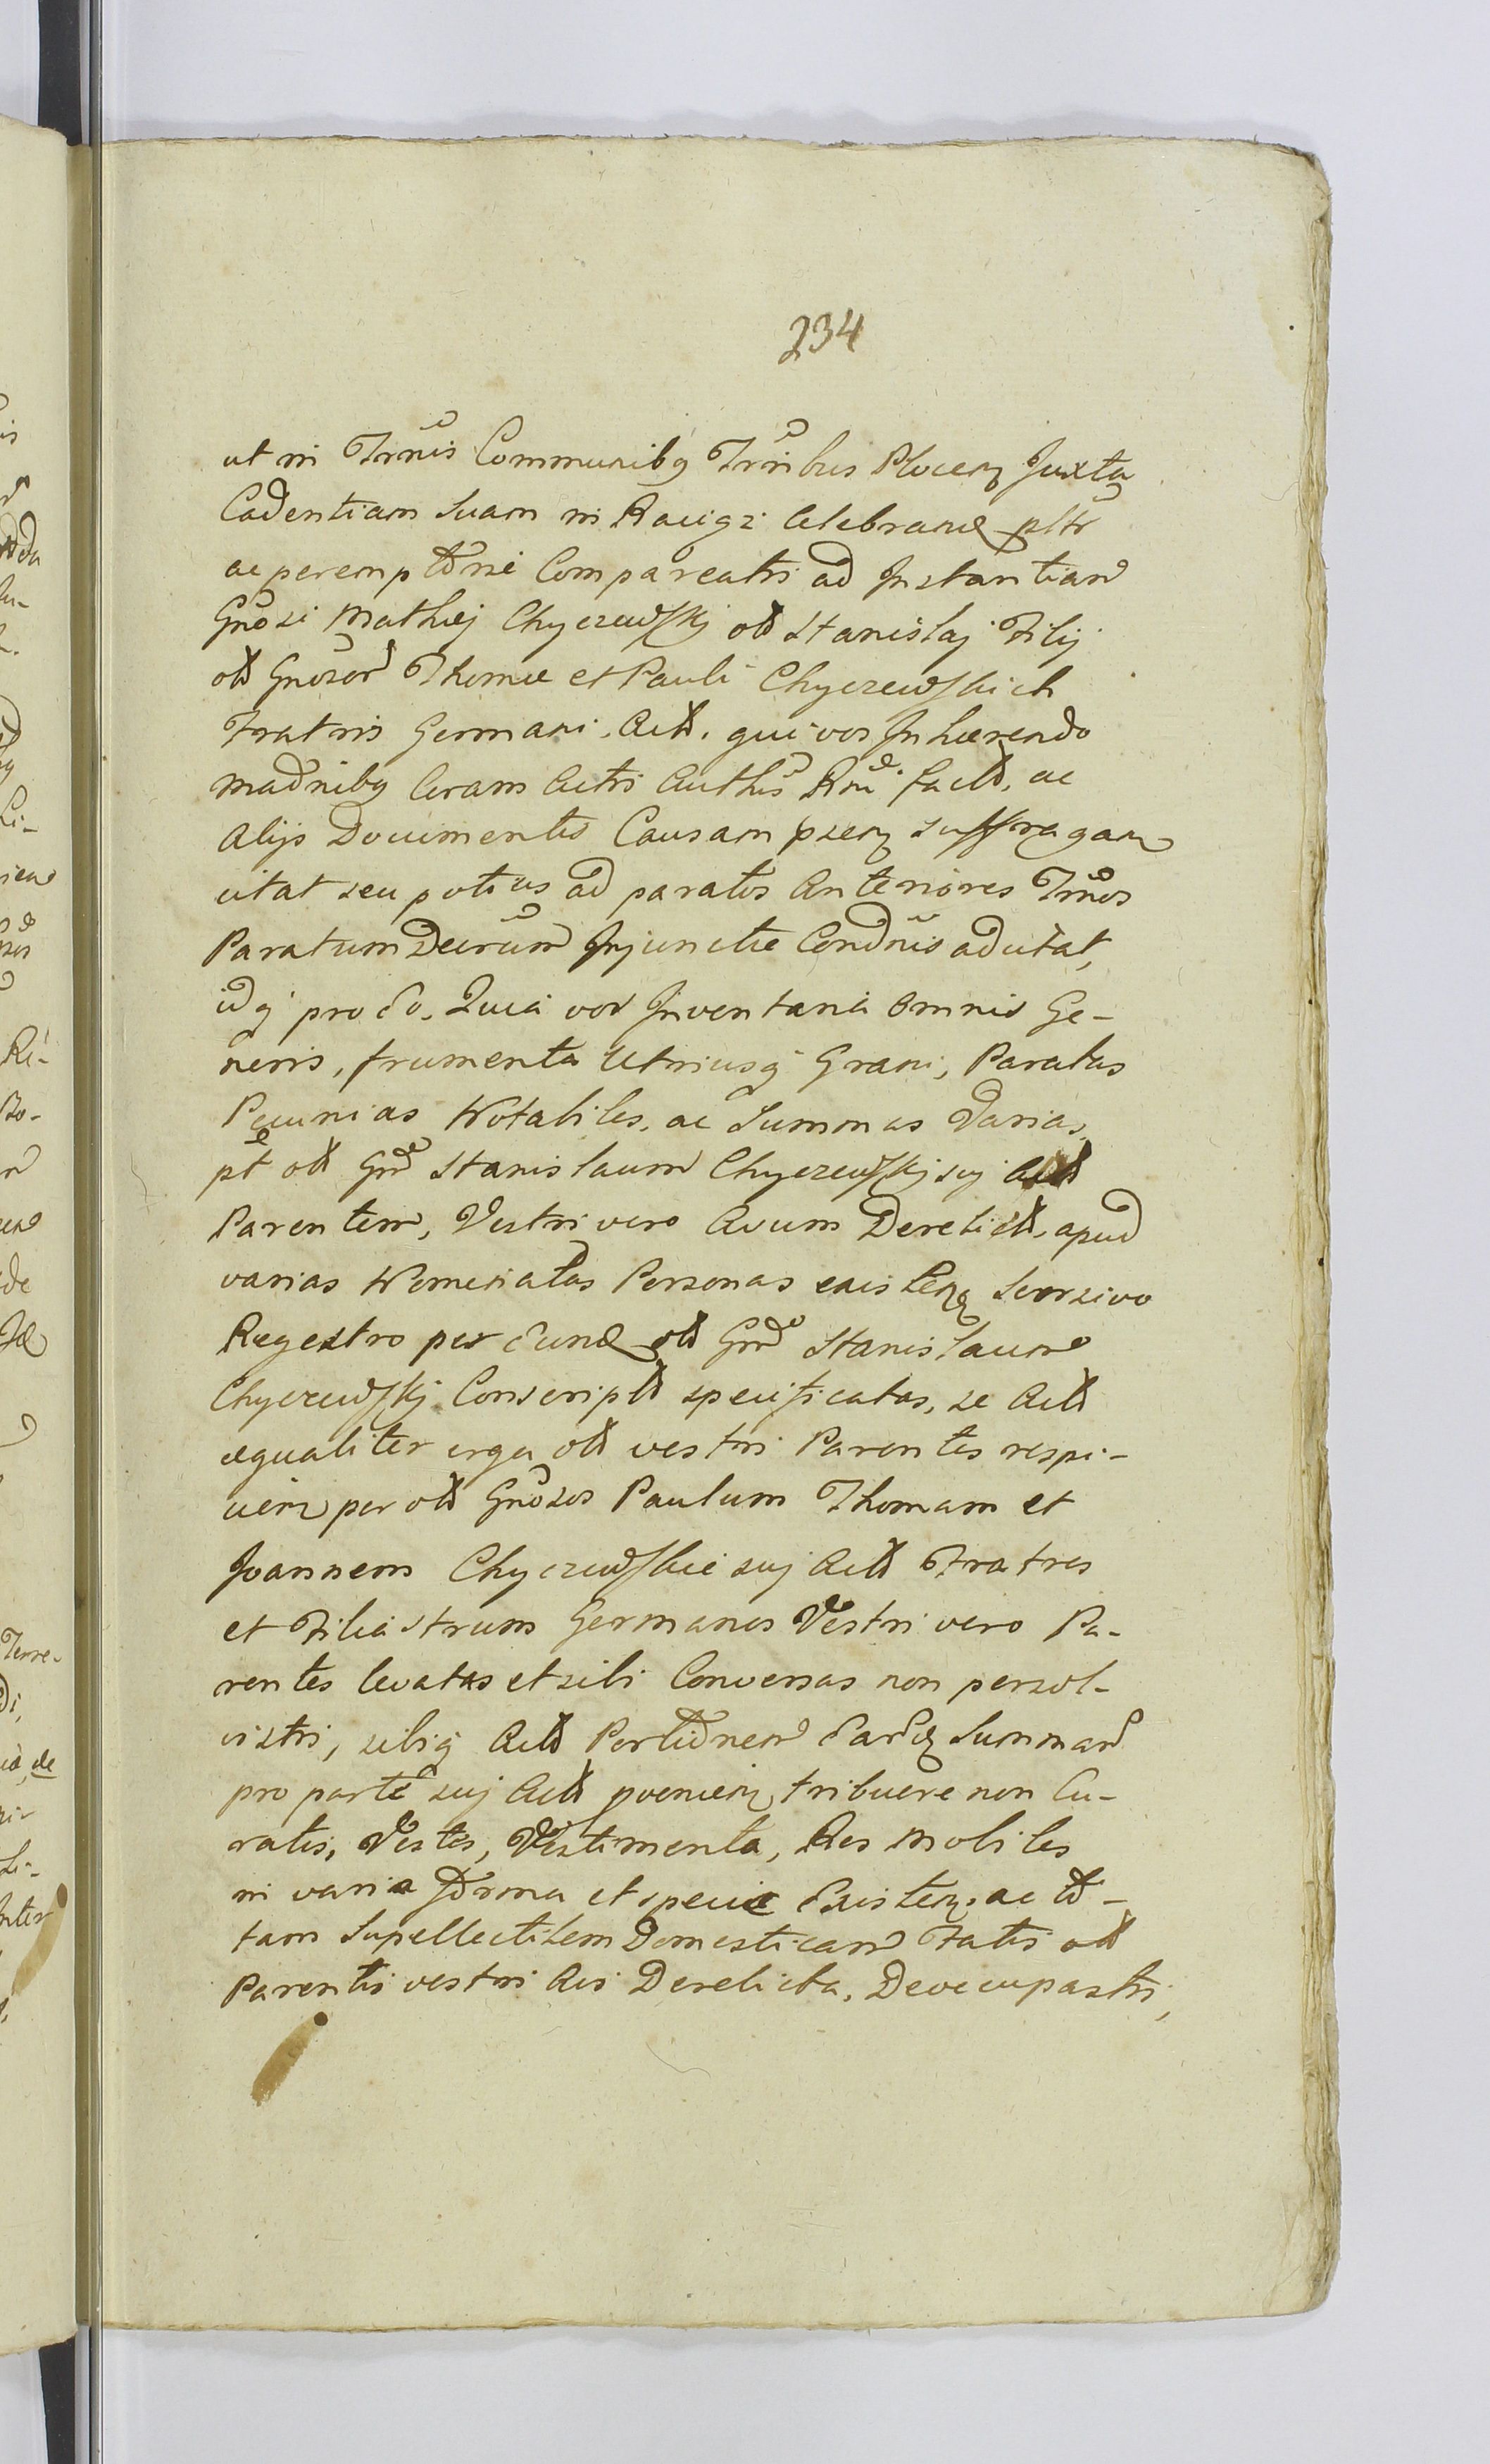 234
ut in Trnis Communibq Trnibus Plocen Juxta
Cadentiam Suam in Raciąz Celebrand pltr
ac peremptorie Compareatis ad Instantiam
Gnosi Mathiej Chyczewskj olt Stanislaj Filij
olt Gnosor Thomæ et Pauli Chyczewskich
Fratris Germani. Actt. qui vos Inhærendo
Madnibq Coram Actis Authis Rni factt. ac
Alijs Documentis Causam psen suffragan
citat seu potius ad paratos Anteriores Trnos
Paratum Decrum Injunctæ Condnis adcitat,
idq pro Eo. Quia vos Inventaria Omnis Ge-
neris, frumenta Utriusq Grani, Paratas
Pecunias Notabiles, ac Summas Varias,
pt olt Gnd Stanislaum Chyczewskj suj Actt
Parentem, Vestri vero Avum Derelictt. apud
varias Nominatas Personas existen Seorsivo
Regestro per Eund olt Gnd Stanislaum
Chyczewskj Conscriptt specificatas, se Actt
æqualiter erga olt vestri Parentes respi-
cien per olt Gnosos Paulum Thomam et
Joannem Chyczewskie suj Actt Fratres
et Filiastrum Germanos Vestri vero Pa-
rentes levatas et sibi Conversas non persol-
vistis, sibiq Actt Portionem Eard Summar
pro parte suj Actt provenien tribuere non Cu-
ratis, Vestes, Vestimenta, Res Mobiles
in varia forma et specie Existen. ac to-
tam Supellectilem Domesticam Fatis olt
Parentis vestri Acs Derelicta, Deoccupastis,